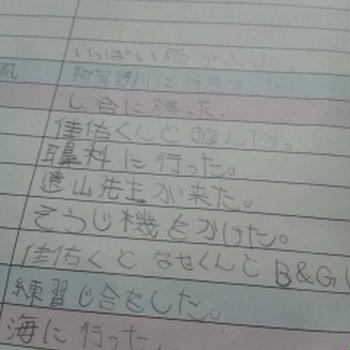 いっぱい雨がふった。
風 阿賀野川に行きました
じ合に勝った。
佳佑くんと遊んだ。
耳鼻科に行った。
遠山先生が来た。
そうじ機をかけた。
佳佑くとなせくんとB&G
練習じ合をした。
海に行った。